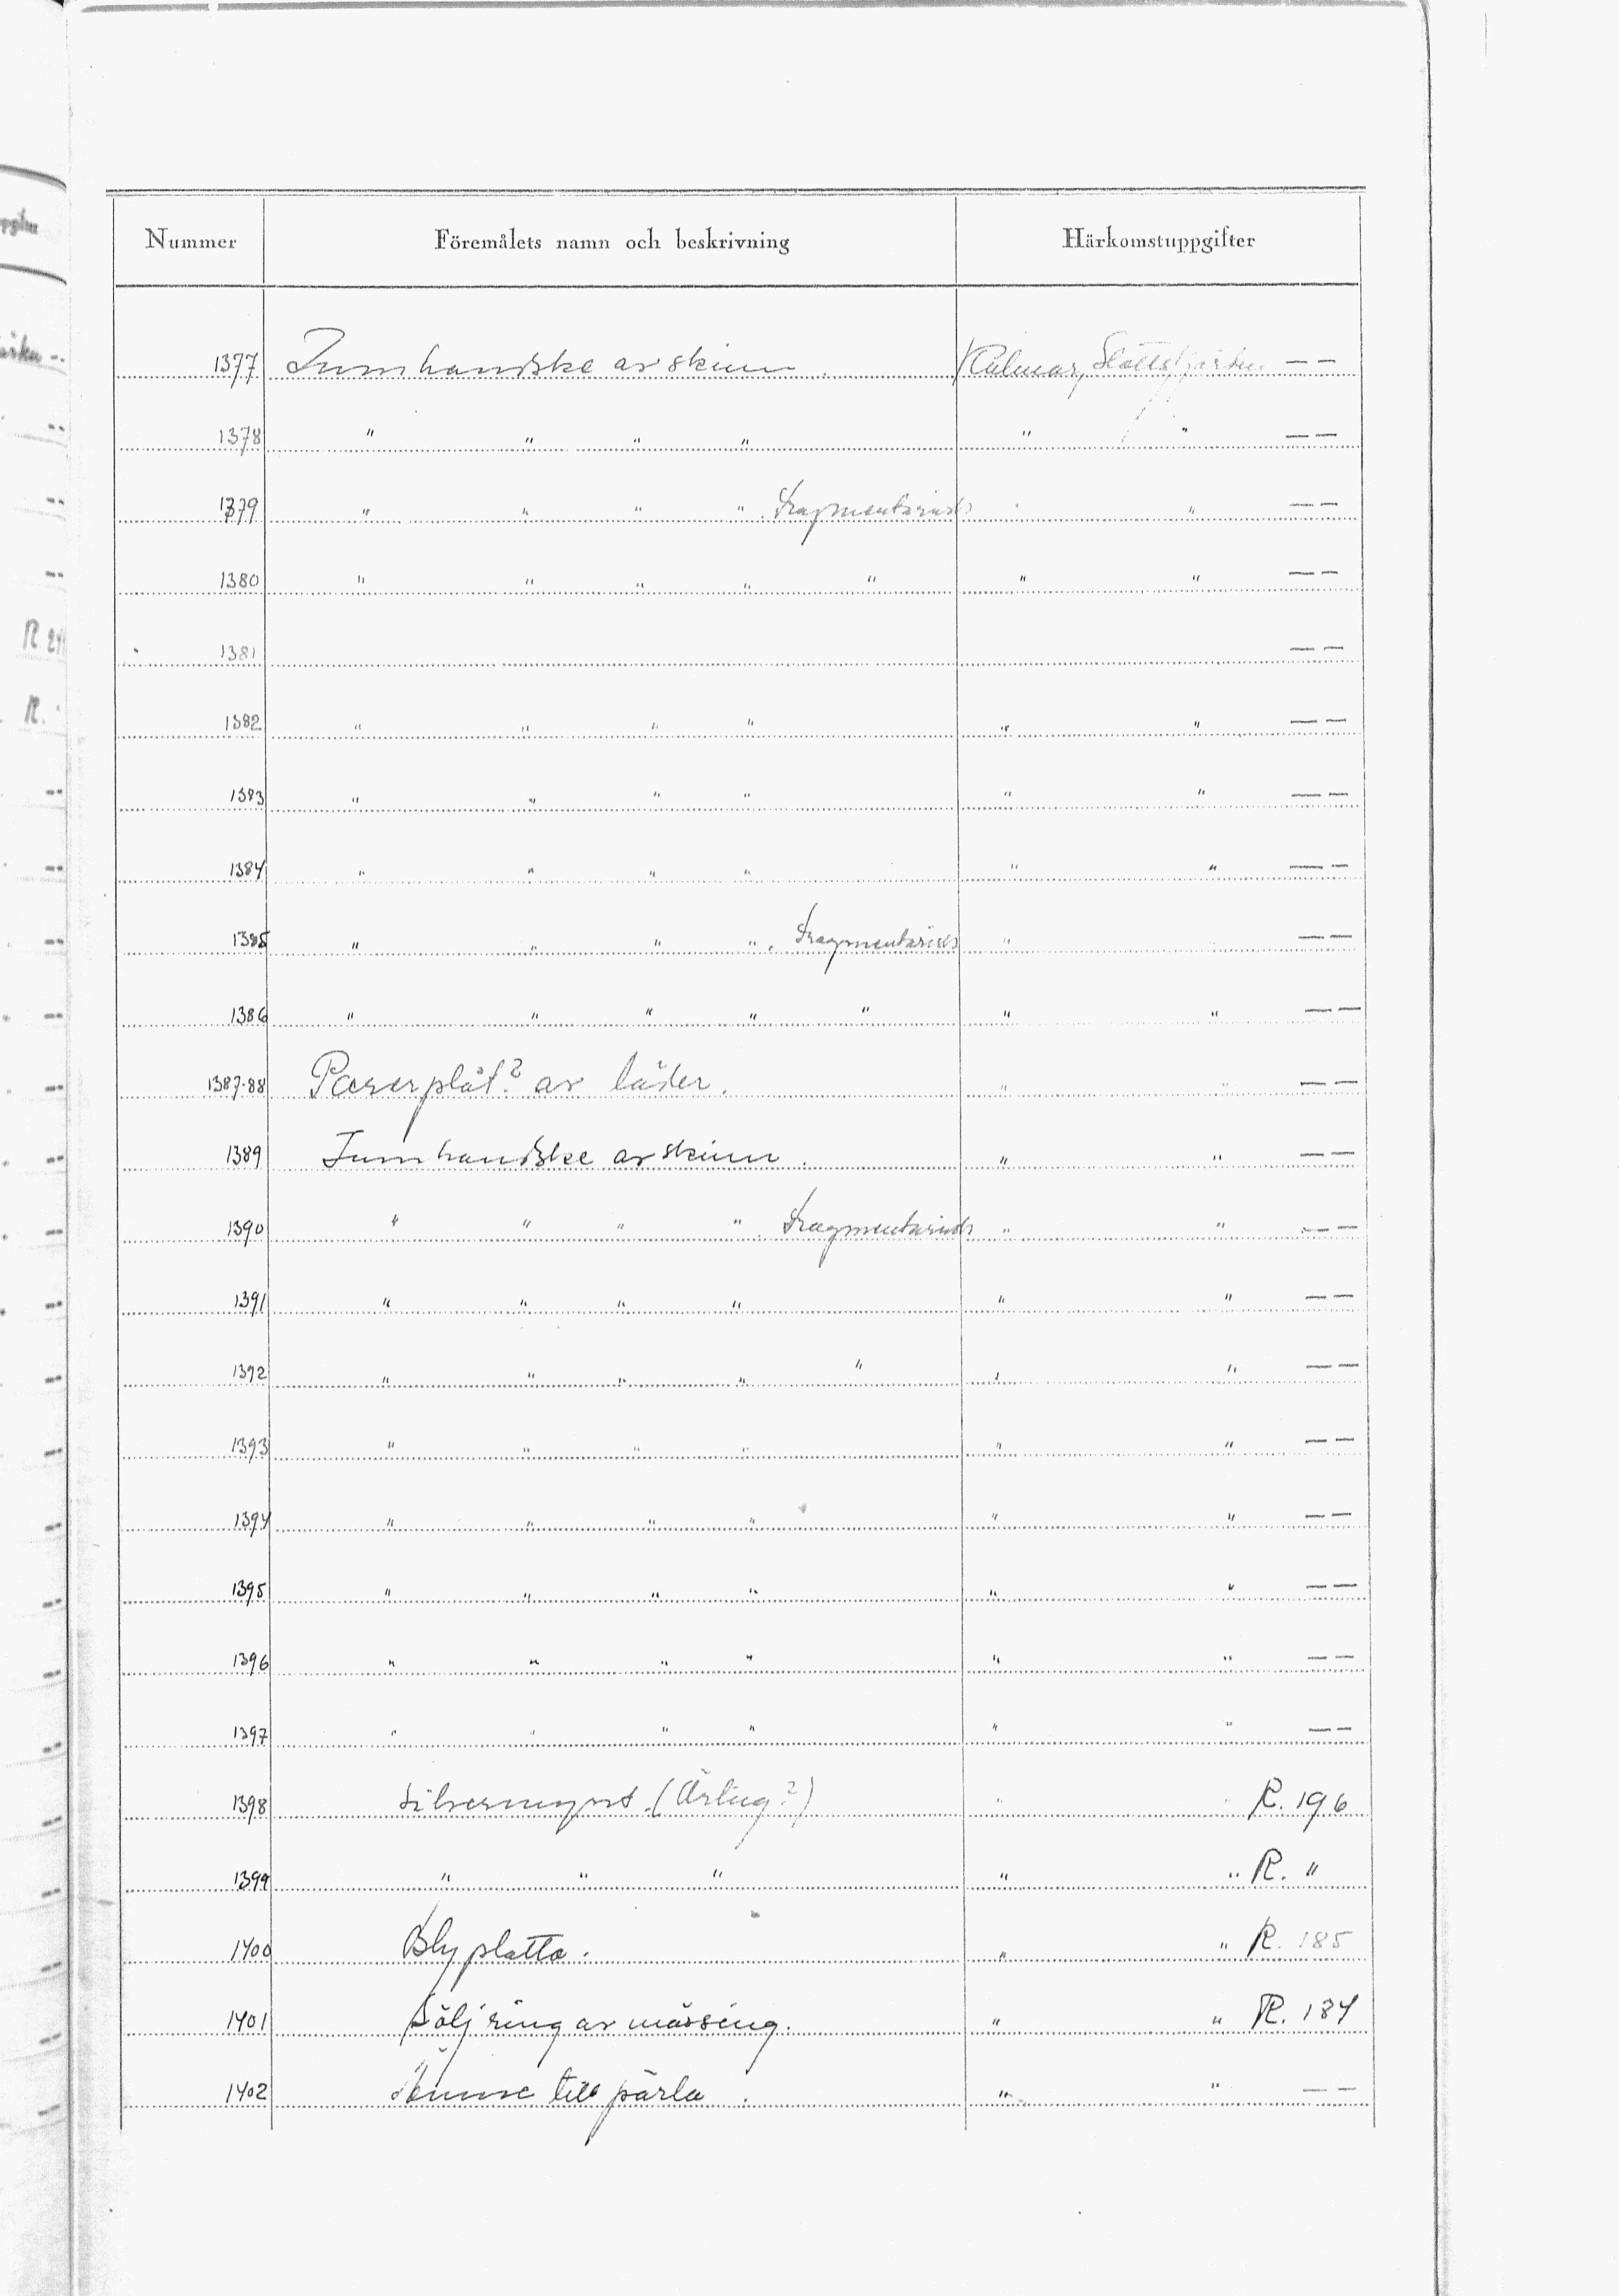 Nummer Föremålets namn och beskrivning Härkomstuppgifter
1377 Tumhandske av skinn. Kalmar, Slottsfjärden — —
1378 " " " " " " — —
1379 " " " ". Fragmentarisk " " — —
1380 " " " " " " " — —
1381 — —
1382 " " " " " " — —
1383 " " " " " " — —
1384 " " " " " " — —
1385 " " " ". Fragmentarisk " " — —
1386 " " " " " " " — —
1387-88 av läder. " " — —
1389 Tumhandske av skinn. " " — —
1390 " " " ". Fragmentarisk " " — —
1391 " " " " " " — —
1392 " " " " " " " — —
1393 " " " " " " — —
1394 " " " " " " — —
1395 " " " " " " — —
1396 " " " " " " — —
1397 " " " " " " — —
1398 Silvermynt (Örtug?) " " R. 196
1399 " " " " " R. "
1400 Blyplatta. " " R. 185
1401 Söljring av mässing. " " R. 184
1402 Ämne till pärla. " " — —
R.